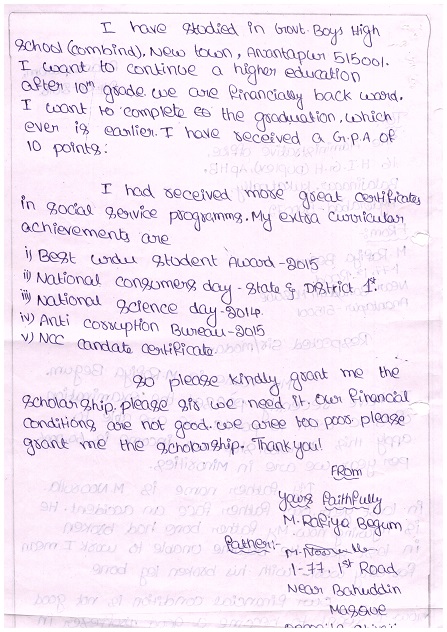 I have studied in Govt. Boys High
school (combind), New town, Anantapur 515001.
I want to continue a higher education
after 10th grade. we are financially back ward.
I want to complete to the graduation, which
ever is earlier. I have received a G.P.A of
10 points:
I had received more great certificates
in social service programms. My extra curricular
achievements are
i) Best urdu student Award - 2015
ii) National consumers day - State & District 1st.
iii) National science day - 2014.
iv) Anti corruption Bureau - 2015
v) NCC candate certificate
so please kindly grant me the
scholarship. please sir we need it. our financial
conditions are not good. we aree too poor please
grant me the scholorship. Thank you!
From
yours faithfully
M. Rafiya Begum
Father:-
1-77, 1st Road
Near Bahuddin